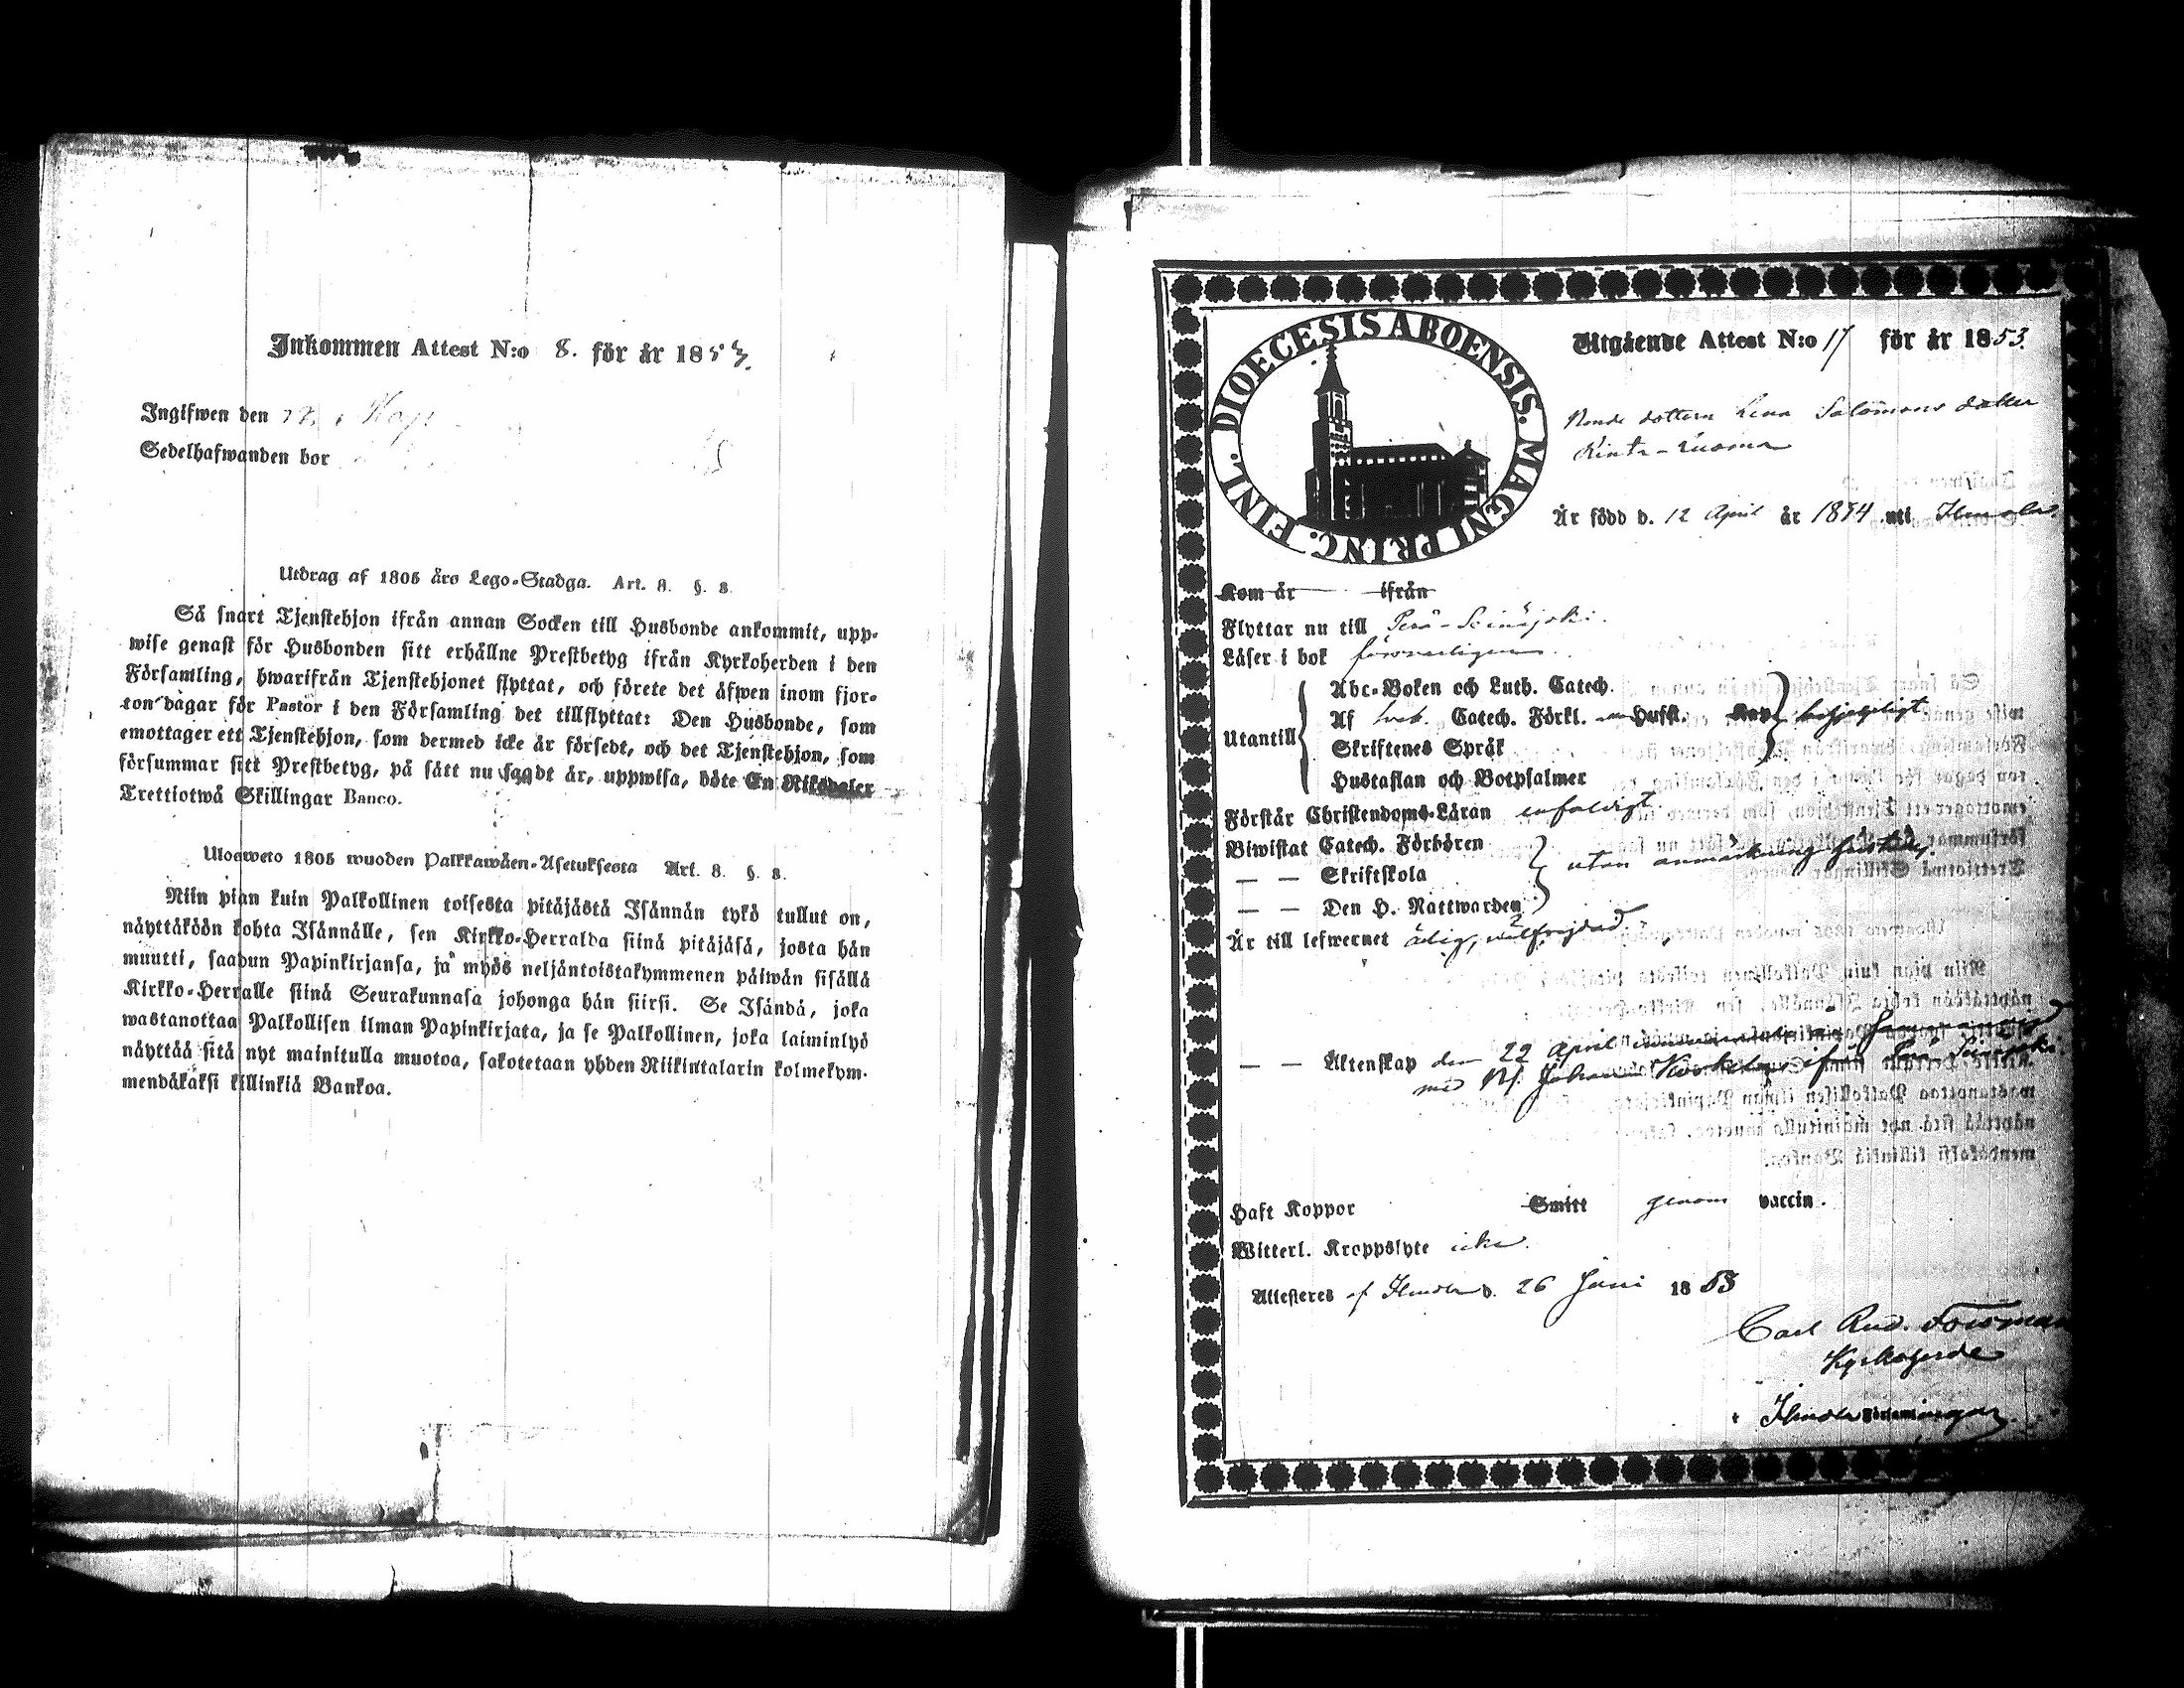 Inkommen Attest N:o 8. för år 1853.
Ingifwen den
Sedelhafwanden bor
Utdrag af 1805 års Lego-Stadga. Art. 8. §. 8.
Så snart Tjenstehjon ifrån annan Socken till Husbonde ankommit, upp-
wise genast för Husbonden sitt erhållne Prestbetyg ifrån Kyrkoherden i den
Församling, hwarifrån Tjenstehjonet flyttat, och förete det äfwen inom fjor-
ton dagar för Pastor i den Församling det tillflyttat: Den Husbonde, som
emottager ett Tjenstehjon, som dermed icke är försedt, och det Tjenstehjon, som
försummar sitt Prestbetyg, på sätt nu sagdt är, uppwisa, böte En Riksdaler
Trettiotwå Skillingar Banco.
Ulosweto 1805 wuoden Palkkawäen-Asetuksesta Art. 8. §. 8.
Niin pian kuin Palkollinen toisesta pitäjästä Isännän tykö tullut on,
näyttäköön kohta Isännälle, sen Kirkko-Herralda siinä pitäjäsä, josta hän
muutti, saadun Papinkirjansa, ja myös neljäntoistakymmenen päiwän sisällä
Kirkko-Herralle siinä Seurakunnasa johonga hän siirsi. Se Isändä, joka
wastanottaa Palkollisen ilman Papinkirjata, ja se Palkollinen, joka laiminlyö
näyttää sitä nyt mainitulla muotoa, sakotetaan yhden Riikintalarin kolmekym-
mendäkaksi killinkiä Bankoa.
DIOECESIS ABOENSIS. MAGNI PRINC. FINL.
Utgående Attest N:o 17 för år 1853.
Bonde dottern Lena Salomons dotter
Är född d. 12 April år uti Ilmola
Kom år ifrån
Flyttar nu till Perä-Seinäjoki.
Läser i bok
Abc-Boken och Luth. Catech.
Af Catech. Förkl. Hufst.
Utantill
Skriftenes Språk
Hustaflan och Botpsalmer
Förstår Christendoms-Läran enfaldigt
Biwistat Catech. Förhören
utan anmärkning
— — Skriftskola
— — Den H. Nattwarden
Är till lefwernet ärlig, wälfrejdad
— — Äktenskap den 22 April
med Johan ifrån Perä Seinäjoki.
Haft Koppor Smitt genom vaccin.
Witterl. Kroppslyte icke.
Attesteras af Ilmola d. 26 Juni 1853
Carl Rud. Forsman
Kyrkoherde
i Ilmola Församlingar.